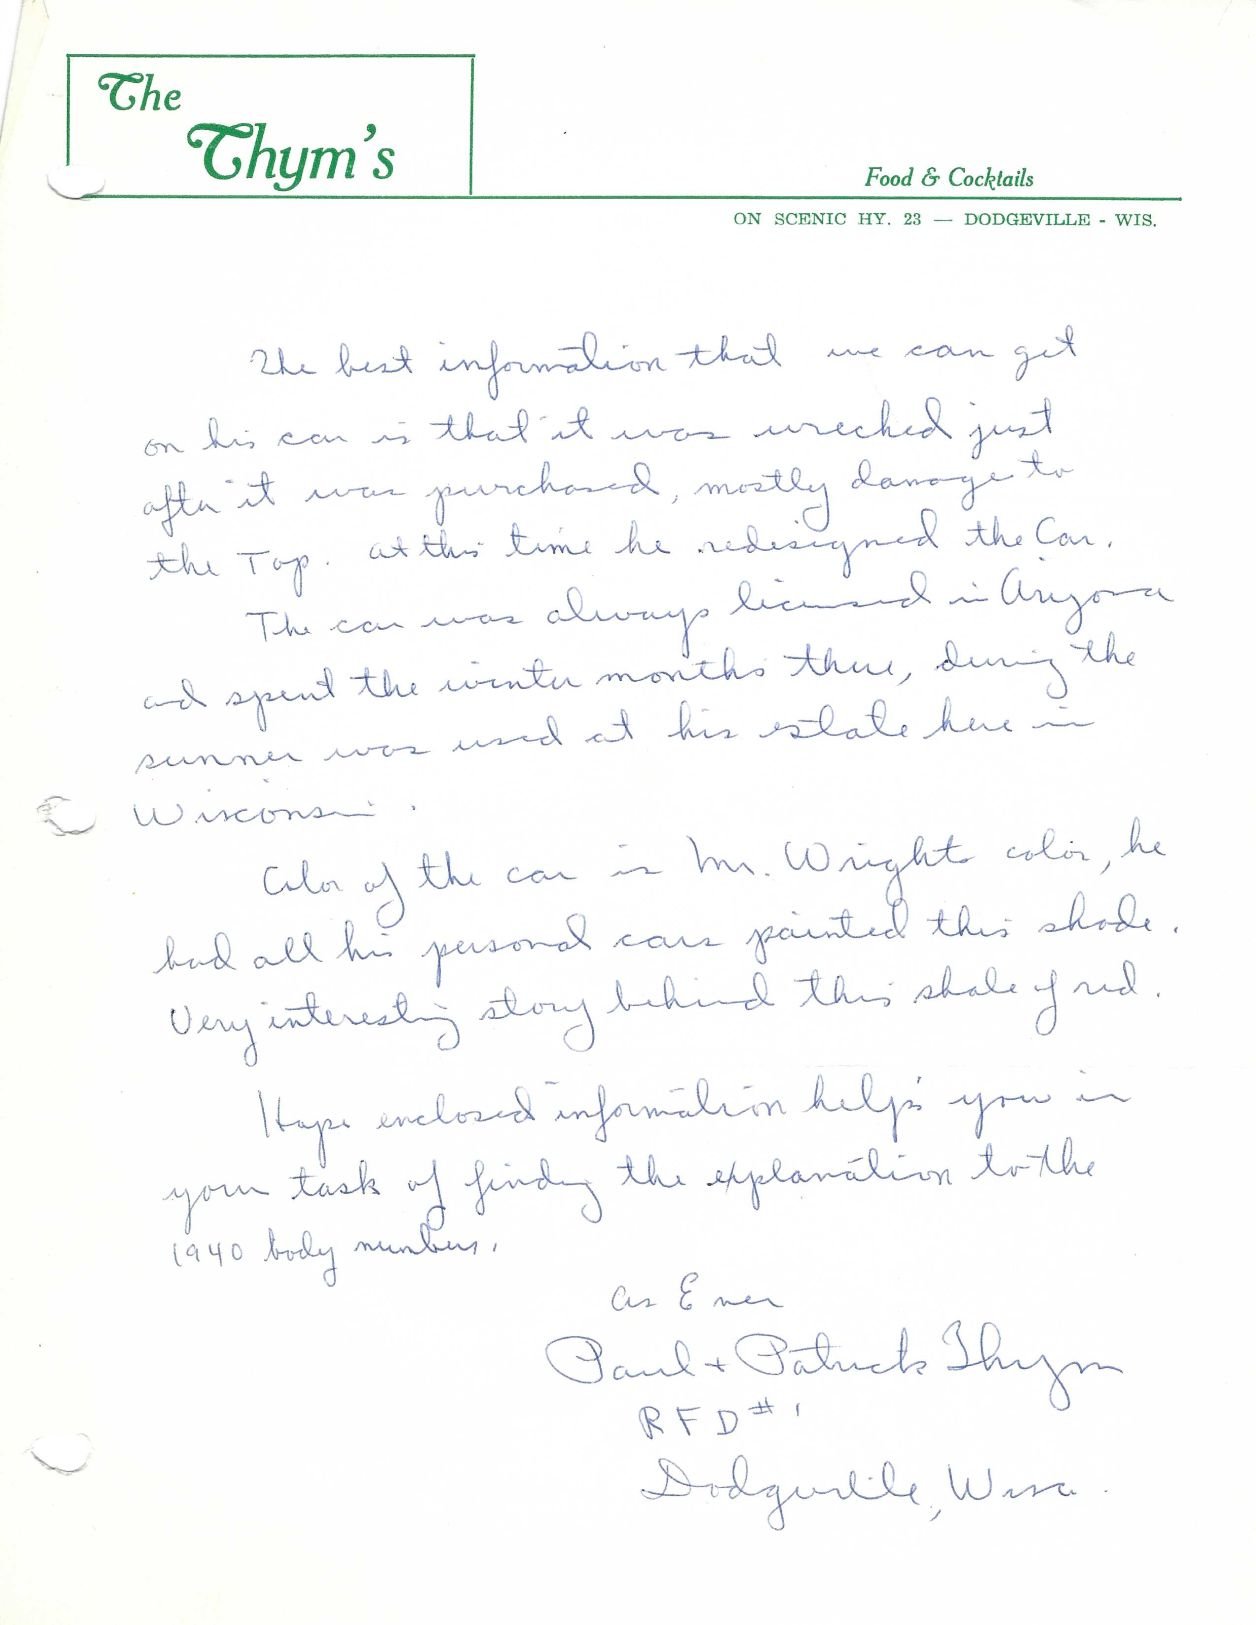 The
Thym's
Food & Cocktails
ON SCENIC HY. 23 — DODGEVILLE - WIS.
The best information that we can get
on his car is that it was wrecked just
after it was purchased, mostly damage to
the Top. at this time he redesigned the Car.
The car was always licensed in Arizona
and spent the winter months there, during the
summer was used at his estate here in
Wisconsin.
Color of the car is Mr. Wright color, he
had all his personal cars painted this shade.
Very interesting story behind this shade of red.
Hope enclosed information help's you in
your task of finding the explanation to the
1940 body numbers.
As Ever
Paul + Patrick Thym
RFD #1
Dodgeville, Wisc.